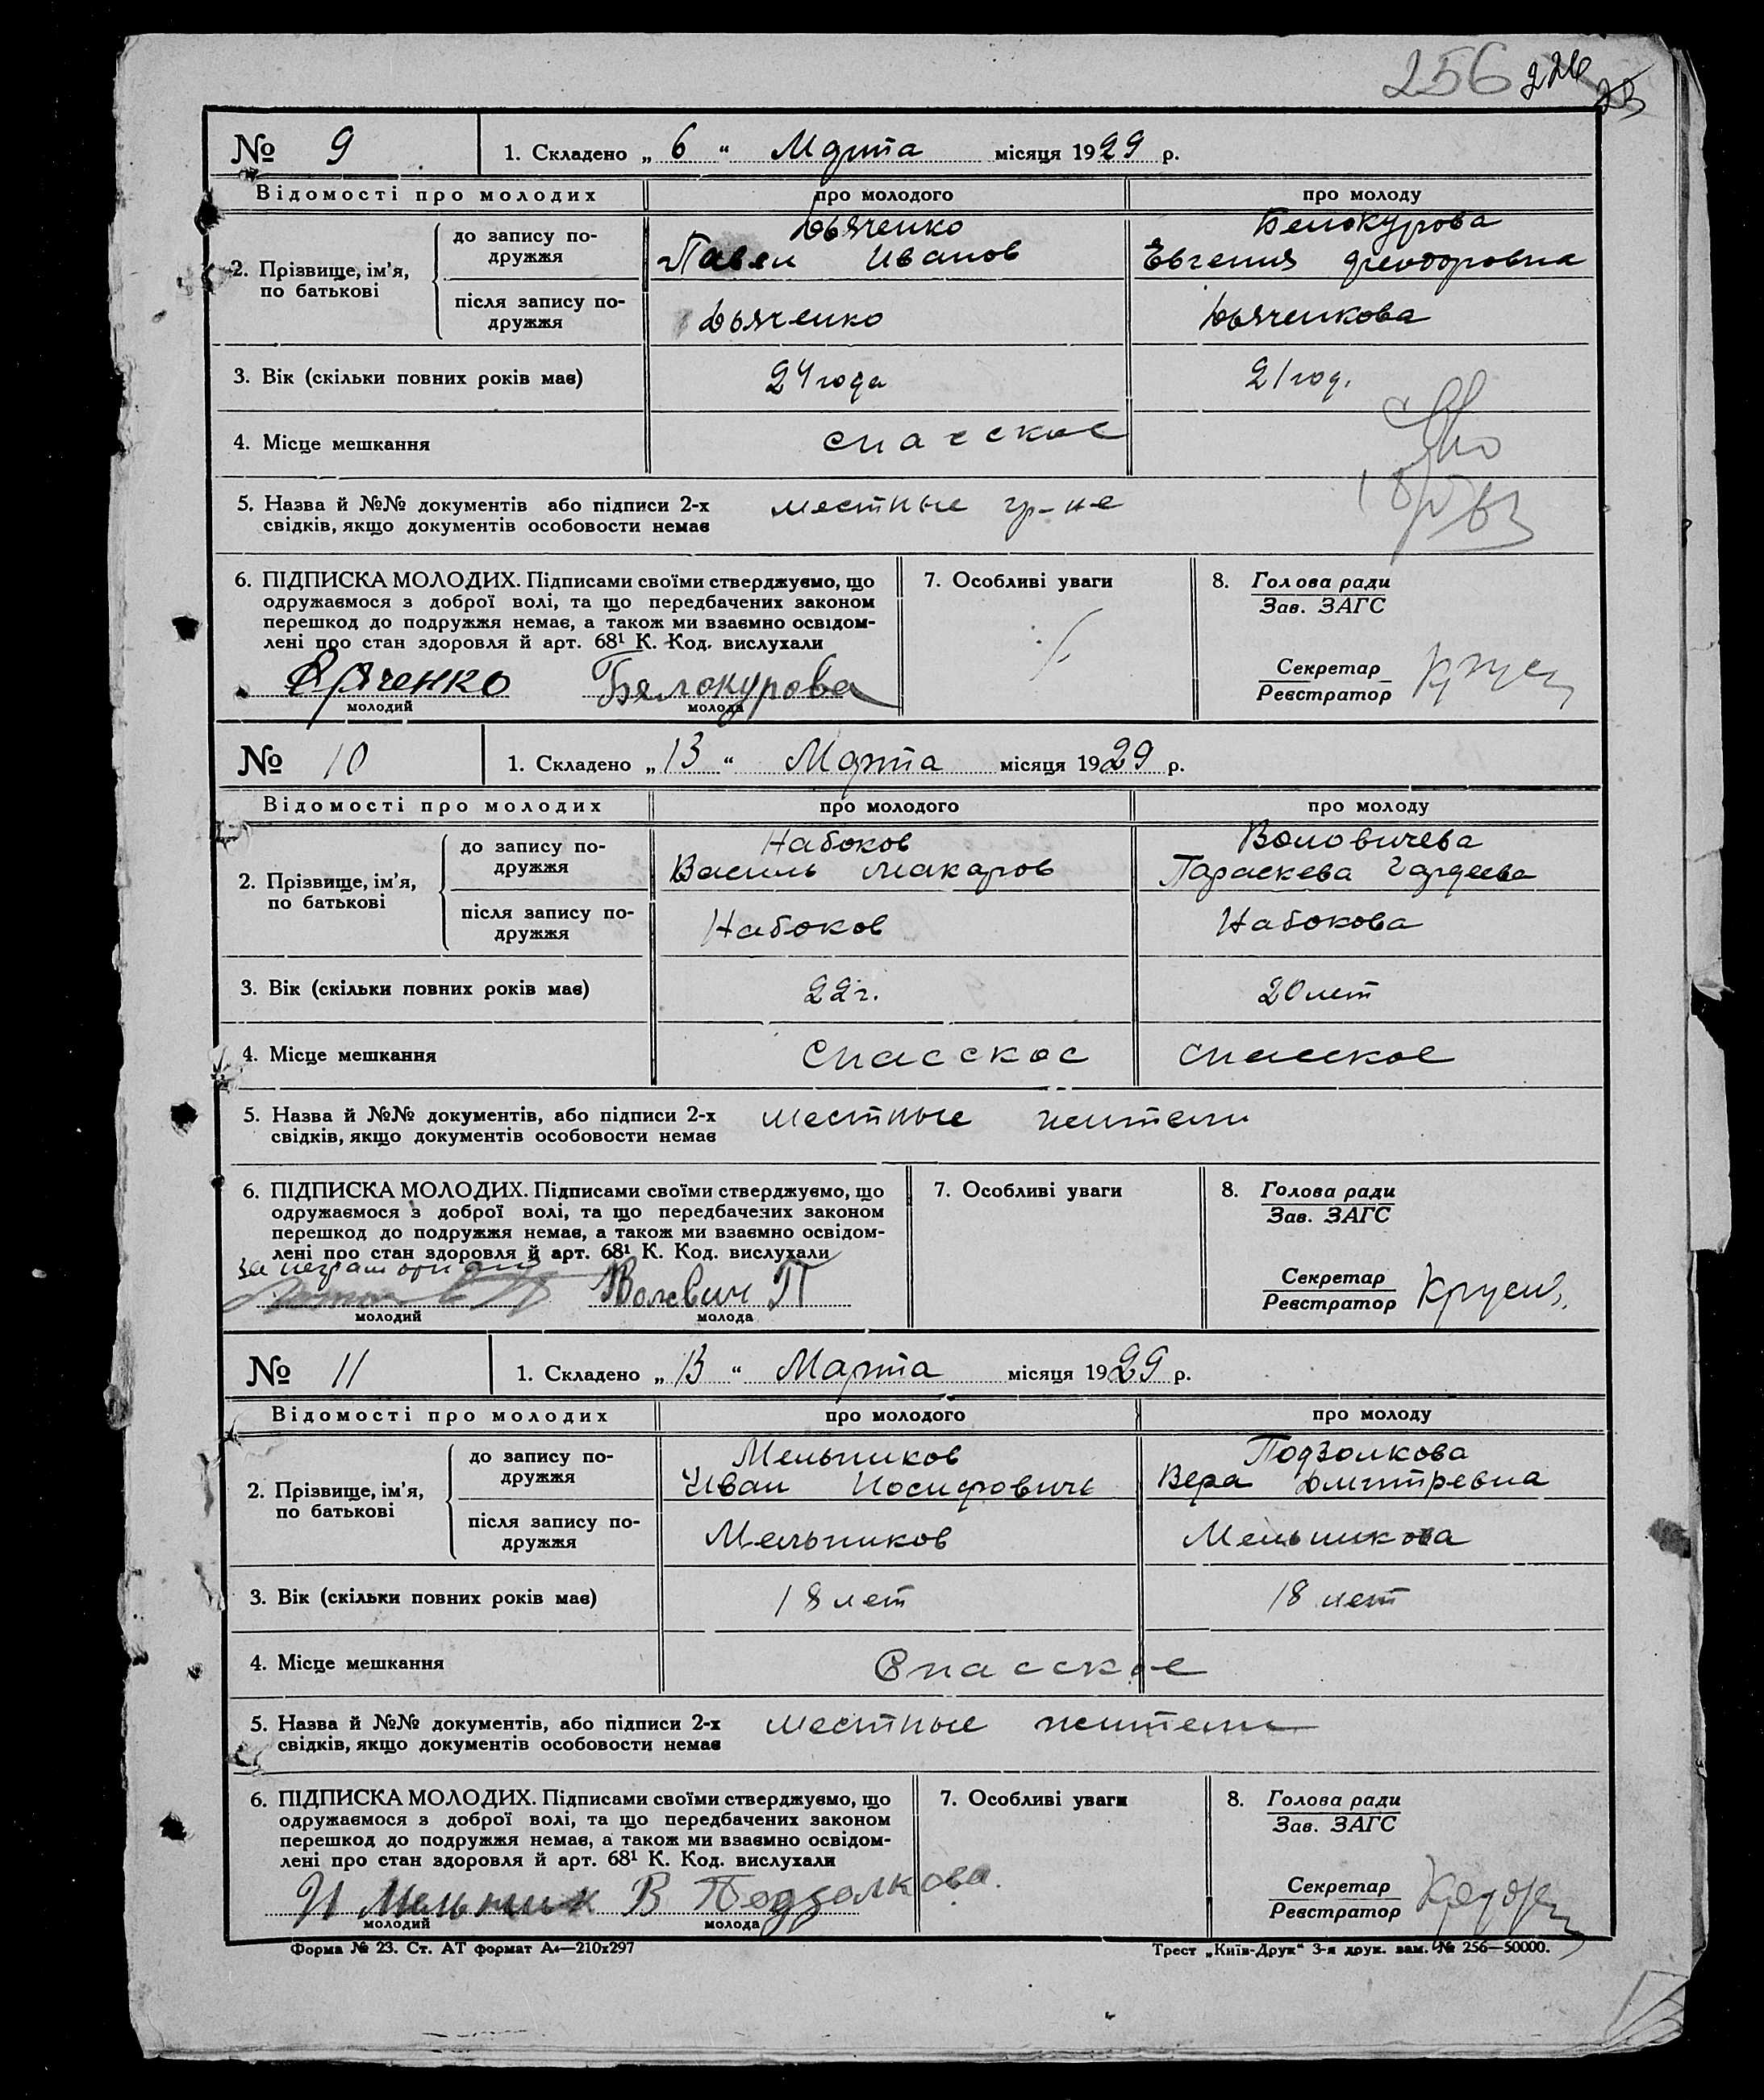 256 226
№ 9 1. Складено „ 6 “ Марта місяця 1929 р.
Відомості про молодих про молодого про молоду
2. Прізвище, ім’я, по батькові
до запису подружжя
Дьяченко Белокурова
Павел Иванов Евгения Феодоровна
після запису по-
дружжя
Дьяченко Дьяченкова
3. Вік (скільки повних років має) 24 года 21 год.
4. Місце мешкання Спасское
5. Назва й №№ документів або підписи 2-х местные гр-не
свідків, якщо документів особовости немає
6. ПІДПИСКА МОЛОДИХ. Підписами своїми стверджуємо, що
одружаємося з доброї волі, та що передбачених законом
перешкод до подружжя немає, а також ми взаємно освідом-
лені про стан здоровля й арт. 68¹ К. Код. вислухали
Дяченко Белокурова
молодий молода
7. Особливі уваги
8. Голова ради
Зав. ЗАГС
Секретар
Реєстратор
№ 10 1. Складено „ 13 “ Марта місяця 1929 р.
Відомості про молодих про молодого про молоду
2. Прізвище, ім’я,
по батькові
до запису по-
дружжя
Набоков Воловичева
Василь Макаров Параскева Гордеева
після запису по-
дружжя
Набоков Набокова
3. Вік (скільки повних років має) 22 г. 20 лет
4. Місце мешкання Спасское Спасское
5. Назва й №№ документів, або підписи 2-х местные жители
свідків, якщо документів особовости немає
6. ПІДПИСКА МОЛОДИХ. Підписами своїми стверджуємо, що
одружаємося з доброї волі, та що передбачених законом
перешкод до подружжя немає, а також ми взаємно освідом-
лені про стан здоровля й арт. 68¹ К. Код. вислухали
Волевич П
молодий молода
7. Особливі уваги
8. Голова ради
Зав. ЗАГС
Секретар
Реєстратор
№ 11 1. Складено „ 13 “ Марта місяця 1929 р.
Відомості про молодих про молодого про молоду
2. Прізвище, ім’я,
по батькові
до запису по-
дружжя
Мельников Подзолкова
Иван Иосифовичь Вера Дмитревна
після запису по-
дружжя
Мельников Мельникова
3. Вік (скільки повних років має) 18 лет 18 лет
4. Місце мешкання Спасское
5. Назва й №№ документів, або підписи 2-х местные жители
свідків, якщо документів особовости немає
6. ПІДПИСКА МОЛОДИХ. Підписами своїми стверджуємо, що
одружаємося з доброї волі, та що передбачених законом
перешкод до подружжя немає, а також ми взаємно освідом-
лені про стан здоровля й арт. 68¹ К. Код. вислухали
И Мельник В Подзолкова.
молодий молода
7. Особливі уваги
8. Голова ради
Зав. ЗАГС
Секретар
Реєстратор
Форма № 23. Ст. АТ формат А₄—210x297 Трест „Київ-Друк“ 3-я друк. зам. № 256—50000.